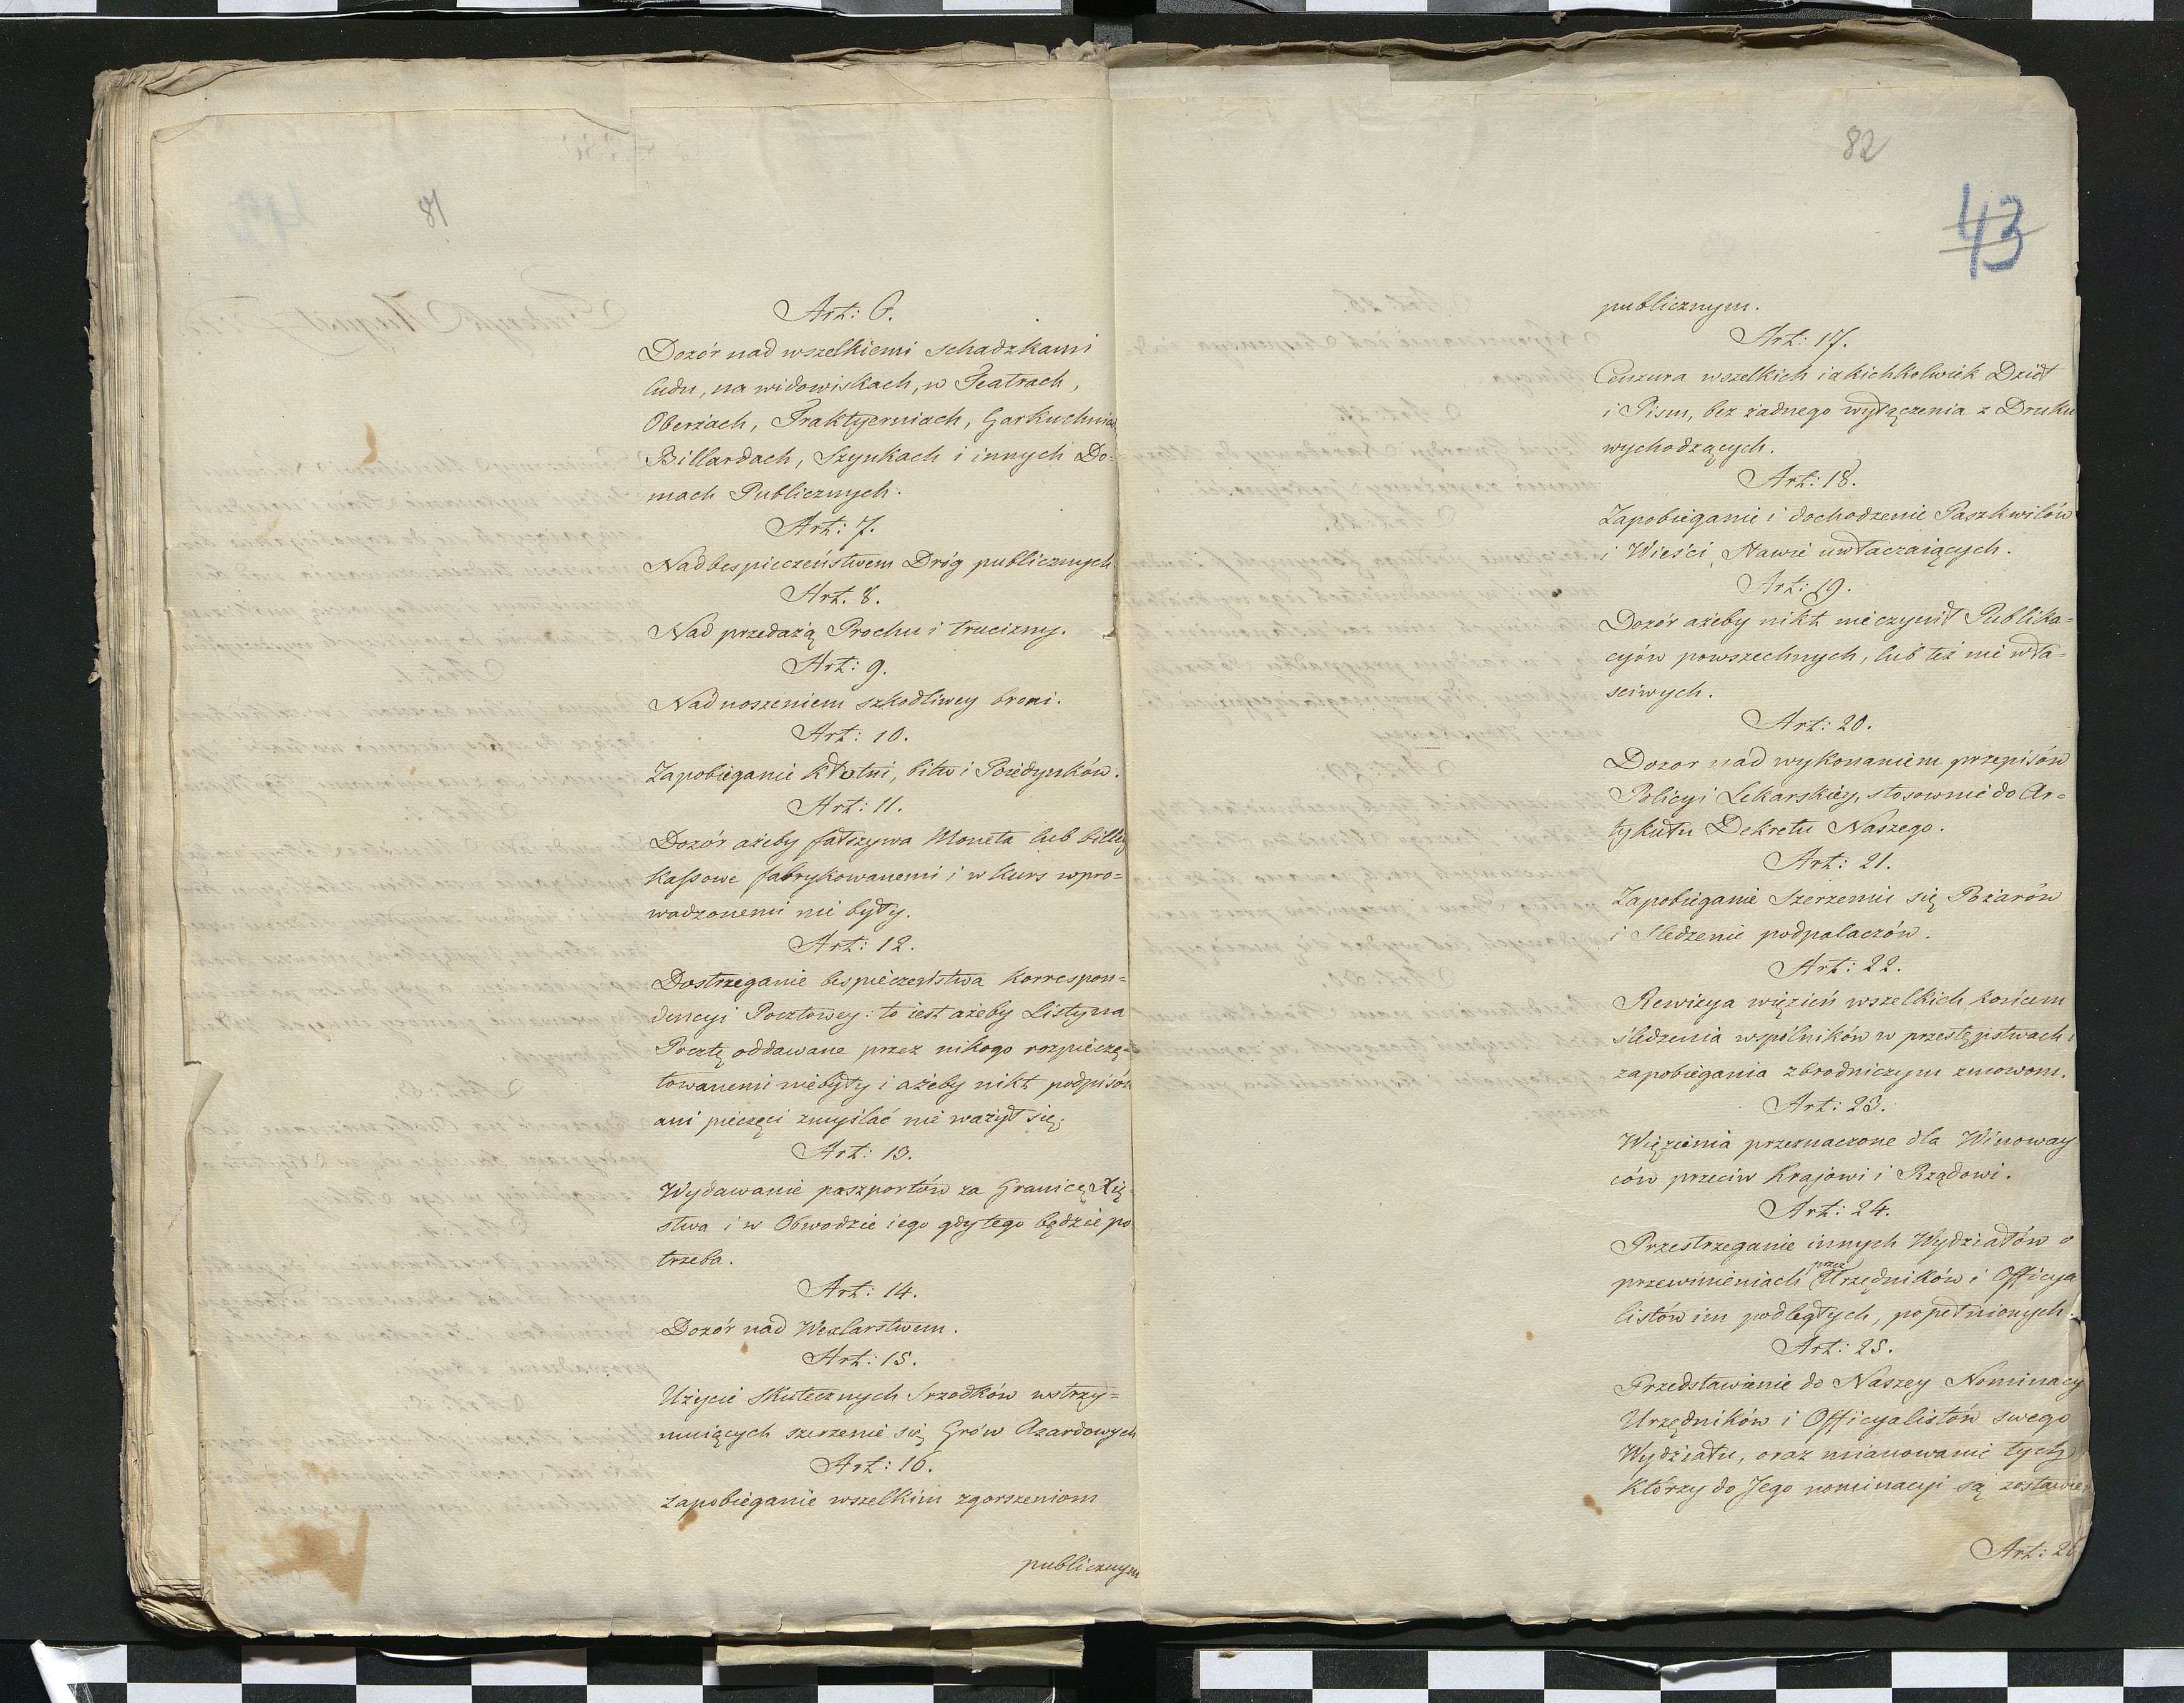 81
Art: 6.
Dozór nad wszelkiemi schadzkami
ludu, na widowiskach, w Teatrach,
Oberżach, Traktyerniach, Garkuchnia
Billardach, Szynkach i innych Do=
mach Publicznych.
Art: 7.
Nad bespieczeństwem Dróg publicznych
Art. 8.
Nad przedażą Prochu i trucizny.
Art: 9.
Nad noszeniem szkodliwey broni.
Art: 10.
Zapobieganie kłutni, bitw i Poiedynków.
Art: 11.
Dozór ażeby fałszywa Moneta lub billety
Kassowe fabrykowanemi i w kurs wpro=
wadzonemi nie były.
Art: 12.
Dostrzeganie bespieczeństwa korrespon=
dencyi Pocztowey: to iest ażeby Listy na
Pocztę oddawane przez nikogo rozpieczę=
towanemi niebyły i ażeby nikt podpisów
ani pieczęci zmyślać nie ważył się.
Art: 13.
Wydawanie paszportów za Granicę Xię=
stwa i w Obwodzie iego gdy tego będzie po
trzeba.
Art: 14.
Dozór nad Wexlarstwem.
Art: 15.
Użycie skutecznych Srzodków wstrzy=
muiących szerzenie się Grów Azardowych
Art: 16.
zapobieganie wszelkim zgorszeniom
publicznym
82
43
publicznym.
Art: 17.
Cenzura wszelkich iakichkolwiek Dzieł
i Pism, bez żadnego wyłączenia z Druku
wychodzących.
Art: 18.
Zapobieganie i dochodzenie Paszkwilów
i Wieści Sławie uwłaczaiących.
Art: 19.
Dozór ażeby nikt nie czynił Publika=
cyów powszechnych, lub też nie wła=
sciwych.
Art: 20.
Dozor nad wykonaniem przepisów
Policyi Lekarskiey, stosownie do Ar=
tykułu Dekretu Naszego.
Art: 21.
Zapobieganie Szerzeniu się Pożarów
i Sledzenie podpalaczów.
Art: 22.
Rewizya więzień wszelkich końcem
śledzenia wspólników w przestępstwach i
zapobiegania zbrodniczym zmowom.
Art: 23.
Więzienia przeznaczone dla Winoway
ców przeciw Krajowi i Rządowi.
Art: 24.
Przestrzeganie innych Wydziałów o
przewinieniach przez Urzędników i Officya
listów im podległych, popełnionych.
Art: 25.
Przedstawienie do Naszey Nominacy
Urzędników i Officyalistów swego
Wydziału, oraz mianowanie tych
którzy do Jego nominacyi są zostawie
Art: 26